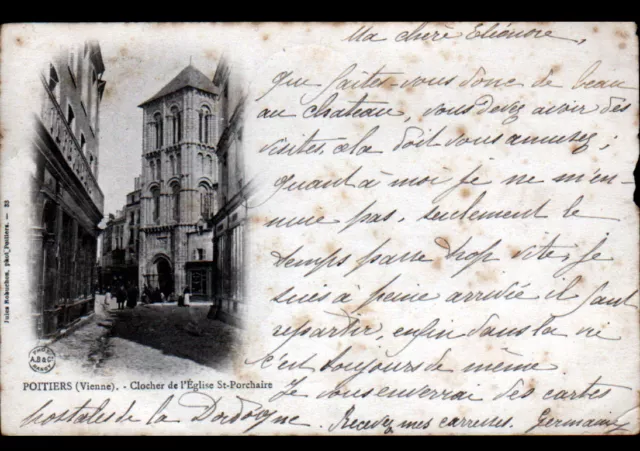 Ma chère Eléonore,
que faites-vous donc de beau
au chateau, vous devez avoir des
visites, cela doit vous amusez;
quant à moi je ne m'en-
nuie pas, seulement le
temps passe trop vite, je
suis à peine arrivée il faut
repartir, enfin dans la vie
c'est toujours de même
Je vous enverrai des cartes
postales de la Dordogne. Recevez mes caresses. Germaine
Jules Robuchon, phot. Poitiers. — 83
A.B & Cie
NANCY
POITIERS (Vienne). - Clocher de l'Église St-Porchaire